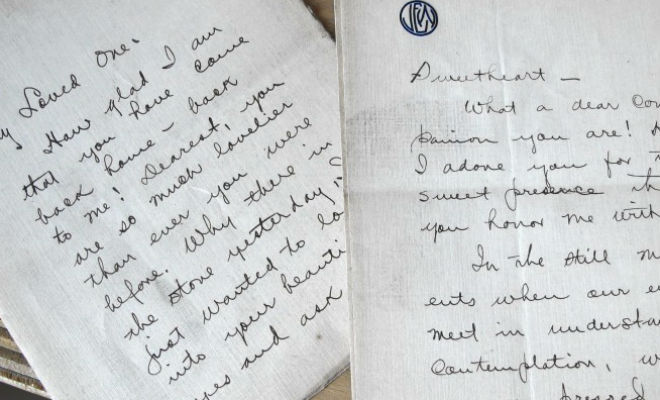 y Loved One:
How glad I am
that you have come
back home - back
to me! Dearest, you
are so much lovelier
than ever you were
before. Why there in
the store yesterday I
just wanted to lo
into your beauti
yes and ask
Sweetheart -
What a dear Com
panion you are!
I adore you for
sweet presence th
you honor me with
In the still m
ents when our e
meet in understa
contemplation, w
pressed